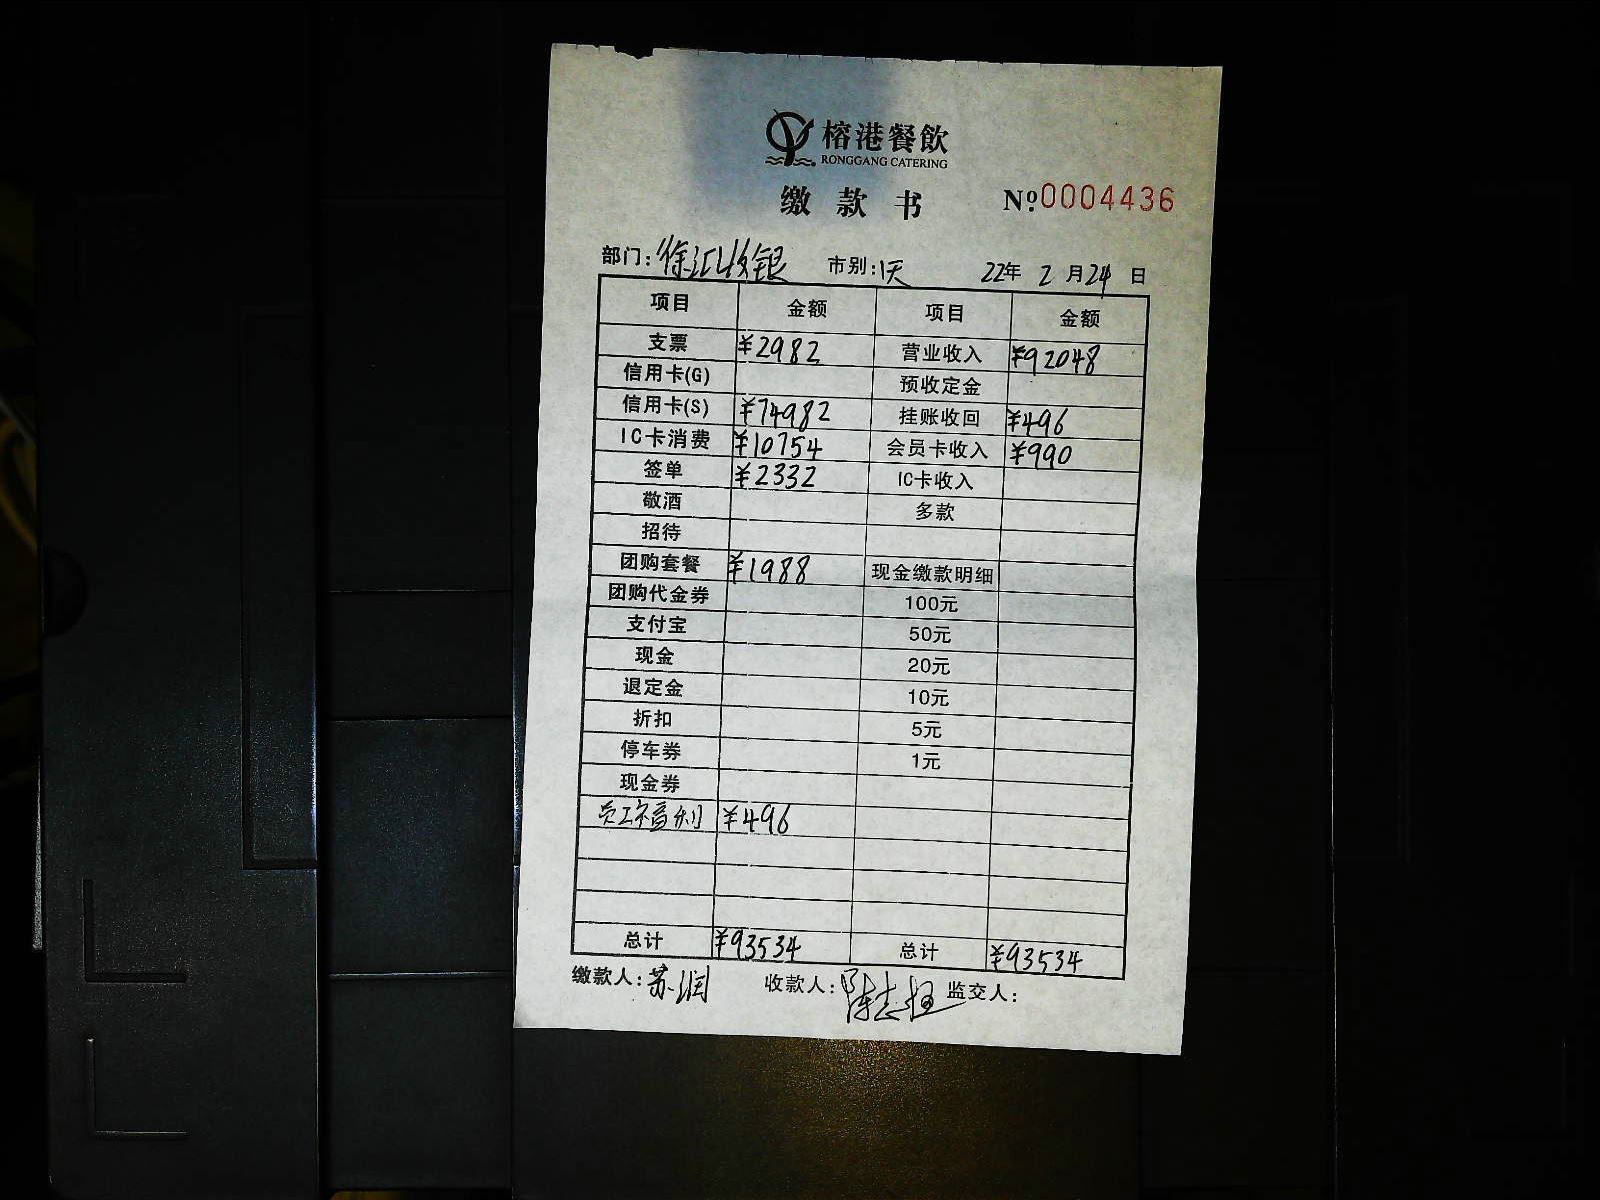 榕港餐飲
RONGGANG CATERING
缴款书 №0004436
部门:徐汇收银 市别:1天 22年2月24日
项目 金额 项目 金额
支票 ¥2982 营业收入 ¥92048
信用卡(G) 预收定金
信用卡(S) ¥74982 挂账收回 ¥496
IC卡消费 ¥10754 会员卡收入 ¥990
签单 ¥2332 IC卡收入
敬酒 多款
招待
团购套餐 ¥1988 现金缴款明细
团购代金券 100元
支付宝 50元
现金 20元
退定金 10元
折扣 5元
停车券 1元
现金券
员工福利 ¥496
总计 ¥93534 总计 ¥93534
缴款人:苏润 收款人:陈志 监交人: